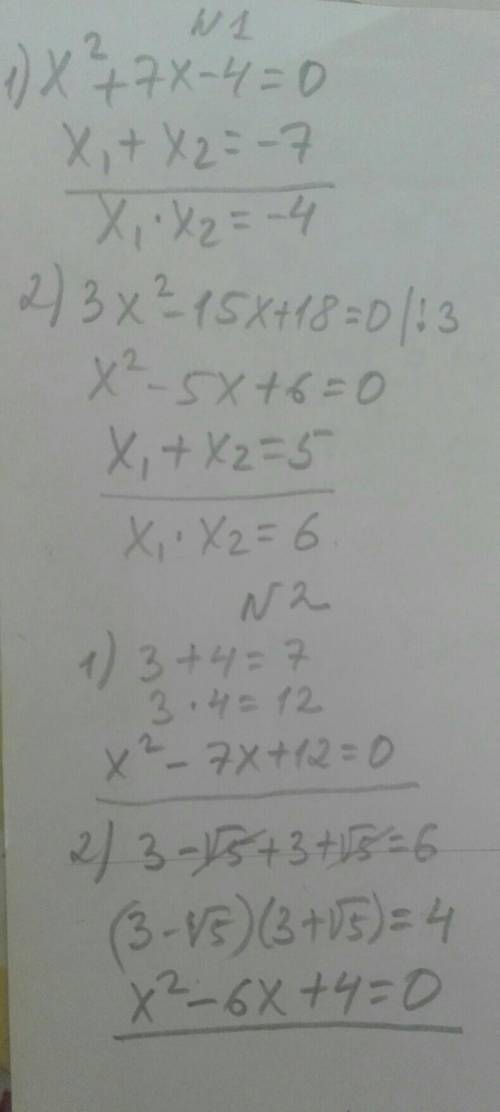 N1
1) x² + 7x - 4 = 0
x₁ + x₂ = -7
x₁ · x₂ = -4
2) 3x² - 15x + 18 = 0 |: 3
x² - 5x + 6 = 0
x₁ + x₂ = 5
x₁ · x₂ = 6
N2
1) 3 + 4 = 7
3 · 4 = 12
x² - 7x + 12 = 0
2) 3 - √5 + 3 + √5 = 6
(3 - √5)(3 + √5) = 4
x² - 6x + 4 = 0